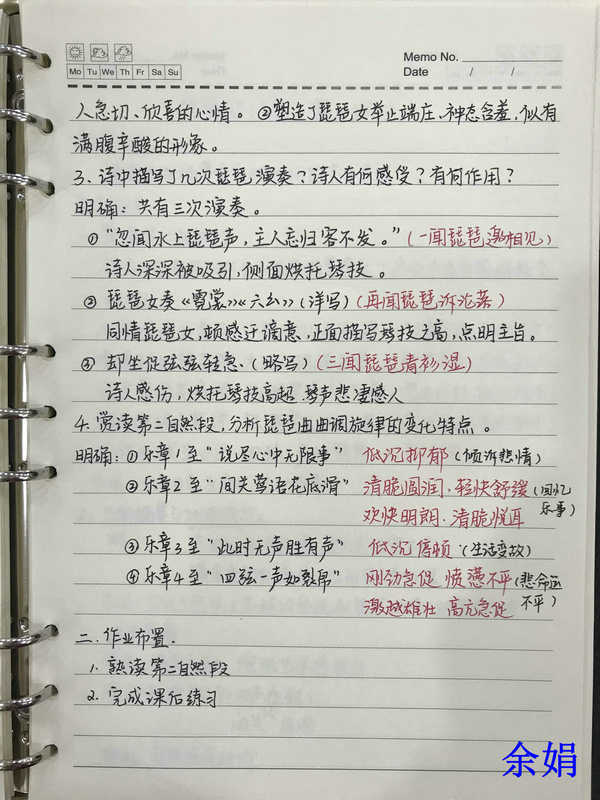 Memo No.
Mo Tu We Th Fr Sa Su
Date / /
人急切、欣喜的心情。②塑造了琵琶女举止端庄、神态含羞,似有
满腹辛酸的形象。
3、诗中描写了几次琵琶演奏?诗人有何感受?有何作用?
明确:共有三次演奏。
①“忽闻水上琵琶声,主人忘归客不发。”(一闻琵琶邀相见)
诗人深深被吸引,侧面烘托琴技。
② 琵琶女奏《霓裳》《六幺》(详写)(再闻琵琶诉沦落)
同情琵琶女,顿感迁谪意,正面描写琴技之高,点明主旨。
③ 却坐促弦弦转急、(略写)(三闻琵琶青衫湿)
诗人感伤,烘托琴技高超、琴声悲凄感人
4.赏读第二自然段,分析琵琶曲曲调旋律的变化特点。
明确:①乐章1至“说尽心中无限事” 低沉抑郁(倾诉悲情)
②乐章2至“间关莺语花底滑” 清脆圆润·轻快舒缓(回忆
欢快明朗·清脆悦耳 乐事)
③乐章3至“此时无声胜有声” 低沉 停顿(生活变故)
④乐章4至“四弦一声如裂帛” 刚劲急促 愤懑不平(悲命运
激越雄壮 高亢急促 不平)
二.作业布置.
1.熟读第二自然段
2.完成课后练习
余娟